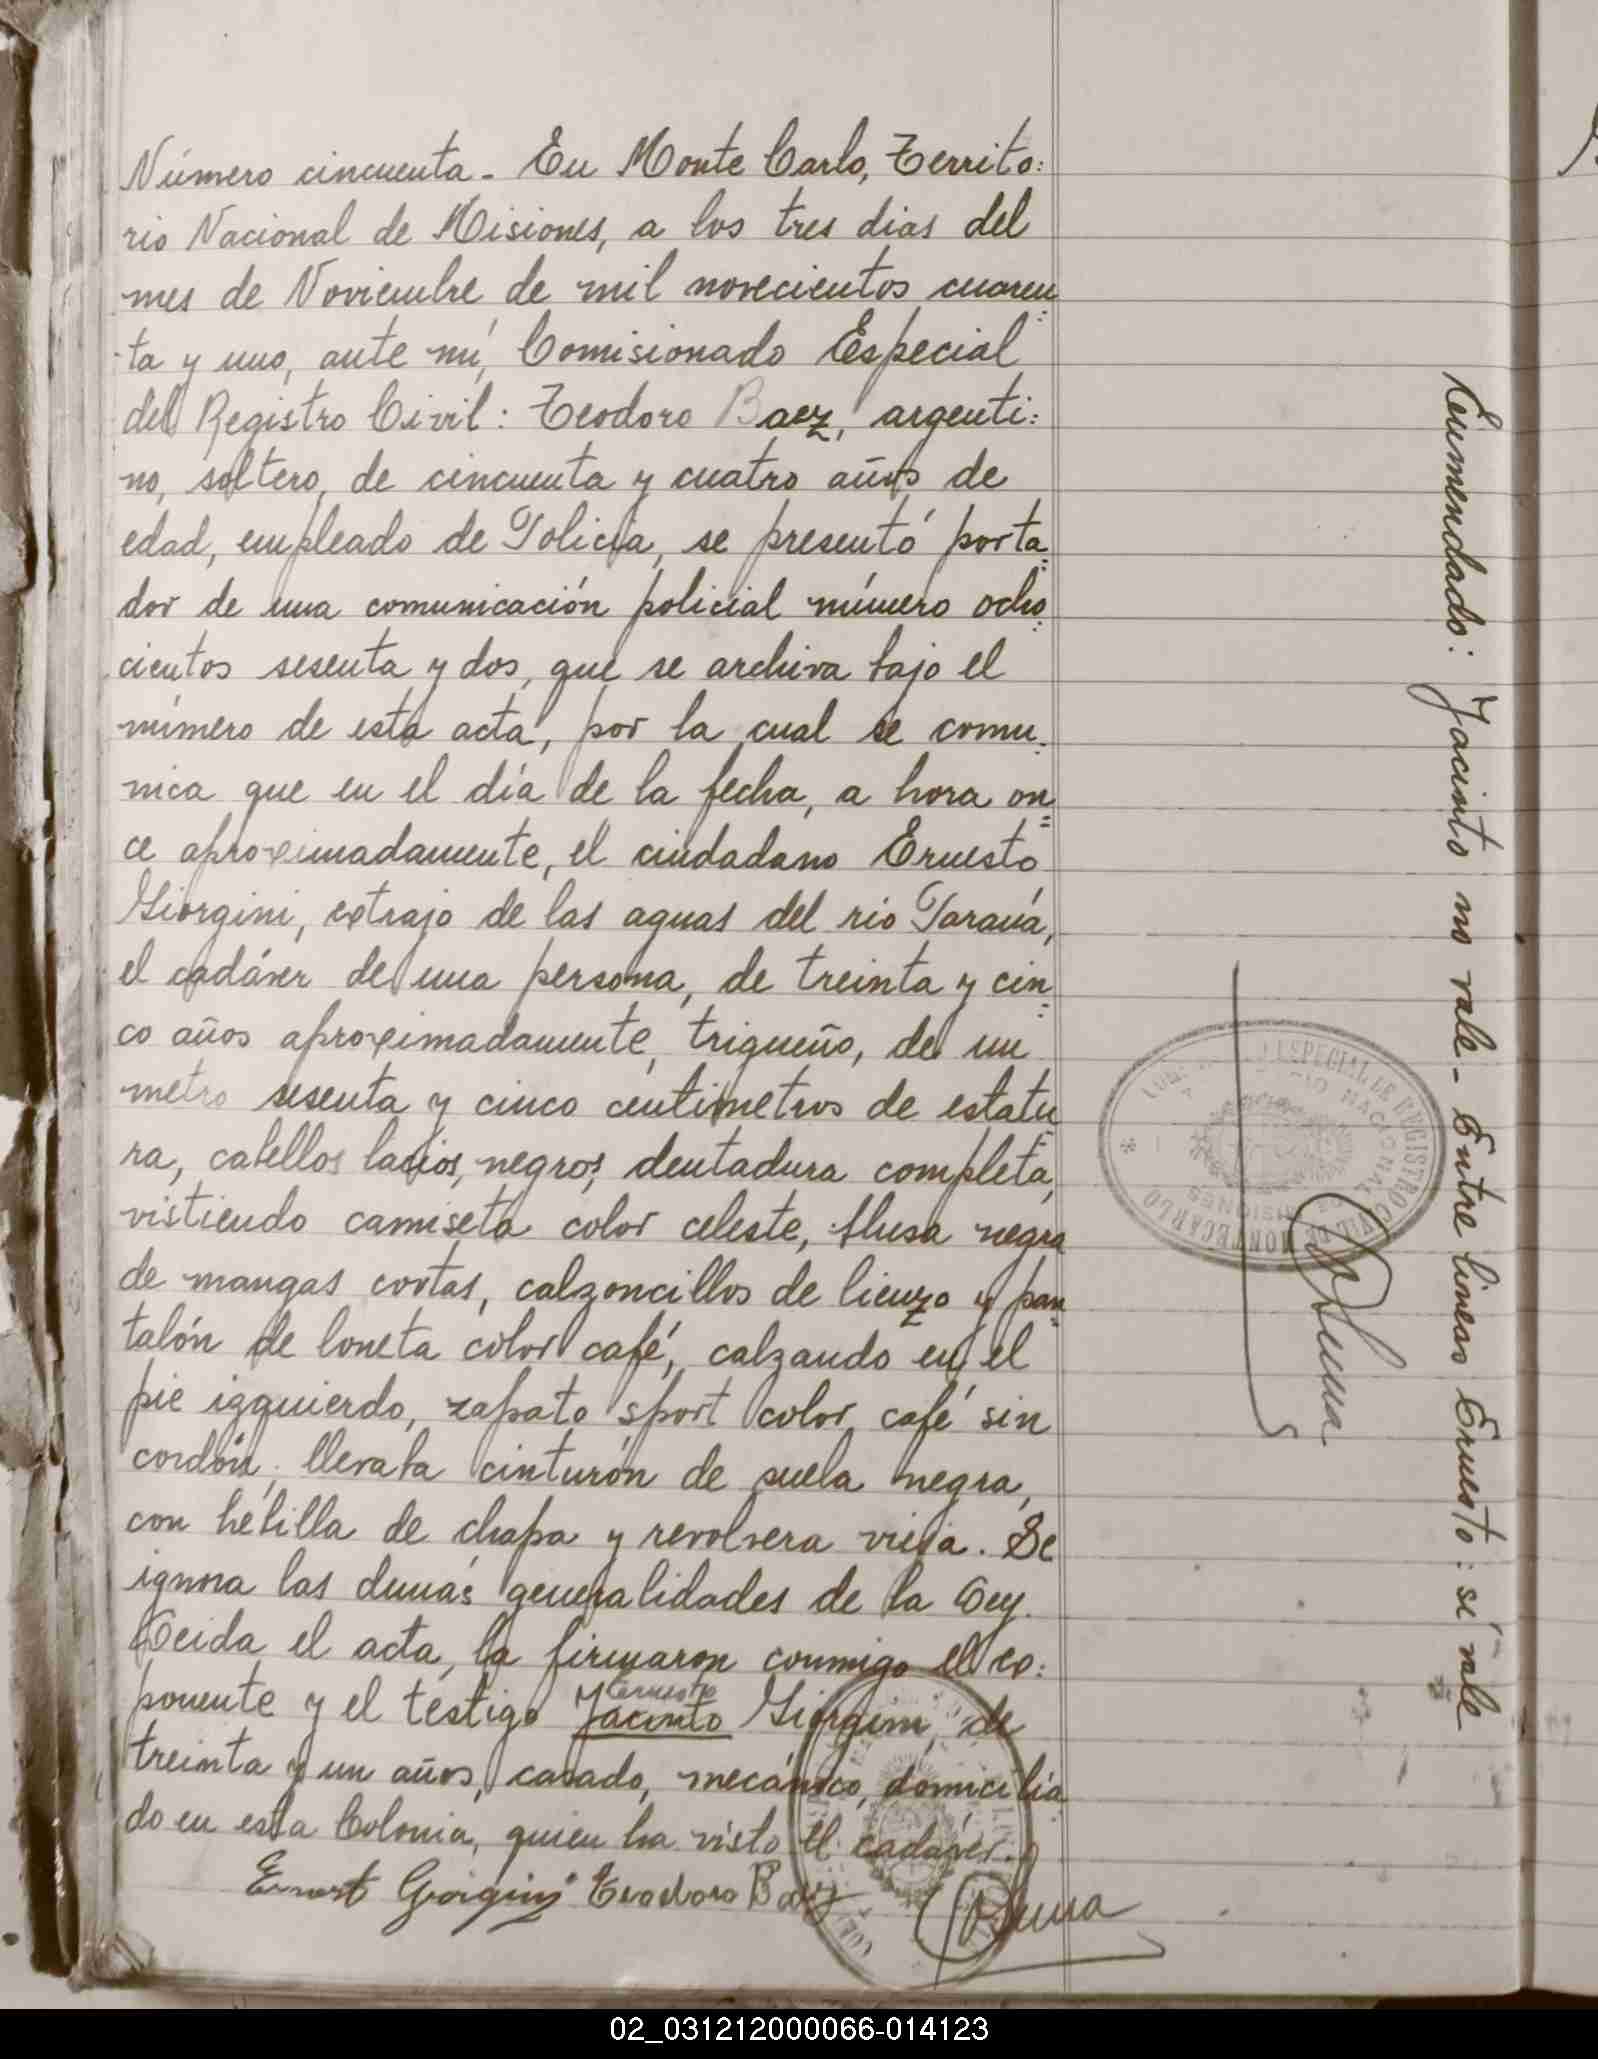 Número cincuenta - En Monte Carlo, Territo:
rio Nacional de Misiones, a los tres dias del
mes de Noviembre de mil novecientos cuaren=
ta y uno, ante mí, Comisionado Especial
del Registro Civil: Teodoro Baez, argenti:
no, soltero, de cincuenta y cuatro años de
edad, empleado de Policía, se presentó porta=
dor de una comunicación policial número ocho=
cientos sesenta y dos, que se archiva bajo el
número de esta acta, por la cual se comu=
nica que en el día de la fecha, a hora on=
ce aproximadamente, el ciudadano Ernesto
Giorgini, extrajo de las aguas del rio Paraná,
el cadáver de una persona, de treinta y cin=
co años aproximadamente, trigueño, de un
metro sesenta y cinco centimetros de estatu=
ra, cabellos lacios, negros, dentadura completa,
vistiendo camiseta color celeste, blusa negra
de mangas cortas, calzoncillos de lienzo y pan=
talón de loneta color café, calzando en el
pie izquierdo, zapato sport color café sin
cordón, llevaba cinturón de suela negra,
con hebilla de chapa y revolvera vieja. Se
ignora las demás generalidades de la Ley.
Leida el acta, la firmaron conmigo el ex:
Ernesto
ponente y el testigo Jacinto Giorgini, de
treinta y un años, casado, mecánico, domicilia
do en esta Colonia, quien ha visto el cadáver.
Ernest Giorgini Teodoro Baez
Enmendado: Jacinto no vale - Entre lineas Ernesto: sí vale
ESPECIAL DE REGISTRO CIVIL DE MONTECARLO
NACIONAL
MISIONES
02_031212000066-014123